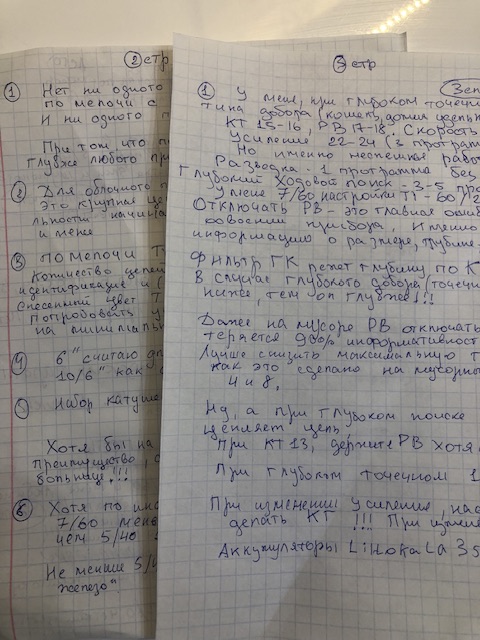 2 стр
1 Нет ни одного
по мелочи с
И ни одного
При том, что п
глубже любого при
2 Для облочного п
Это крупная це
льности начина
и менее
3 ПО мелочи Т
Количество целей
идентификацие и (
Снесенный цвет Т
Попробовать у
на минималь
4 6" считаю дл
10/6" как
5 Набор катуше
Хотя бы на
преимущество,
больнице!!!
6 Хотя по ино
7/60 мень
чем 5/40
Не меньше 5/4
железо"
3 стр
1 У меня, при глубоком точечн
тина добора (кошел, домик
КТ 15-16, РВ 17-18. Скорость
Усиление 22-24 (3 програм
Но именно неспешная работ
Разводка - 1 программа без
Глубокий ходовой поиск - 3-5 про
У меня 7/60, настройки ТТ - 60/
Отключать РВ - это главная ошиб
своении прибора. Именно
информацию о размере, глубине,
Фильтр ГК режет глубину, по К
В случае глубокого добора (точечн
ниже, тем он глубже!!!
Даже на мусоре РВ отключать
теряется информативност
Лучше снизить максимальную Т
как это сделано на мусорны
4 и 8.
Ну, а при глубоком поиске
цепляет цель
При КТ 13, держите РВ хотя
При глубоком точечном 1
При изменении усиления, нас
делать КГ !!! При измене
Аккумуляторы LiitoKala 35